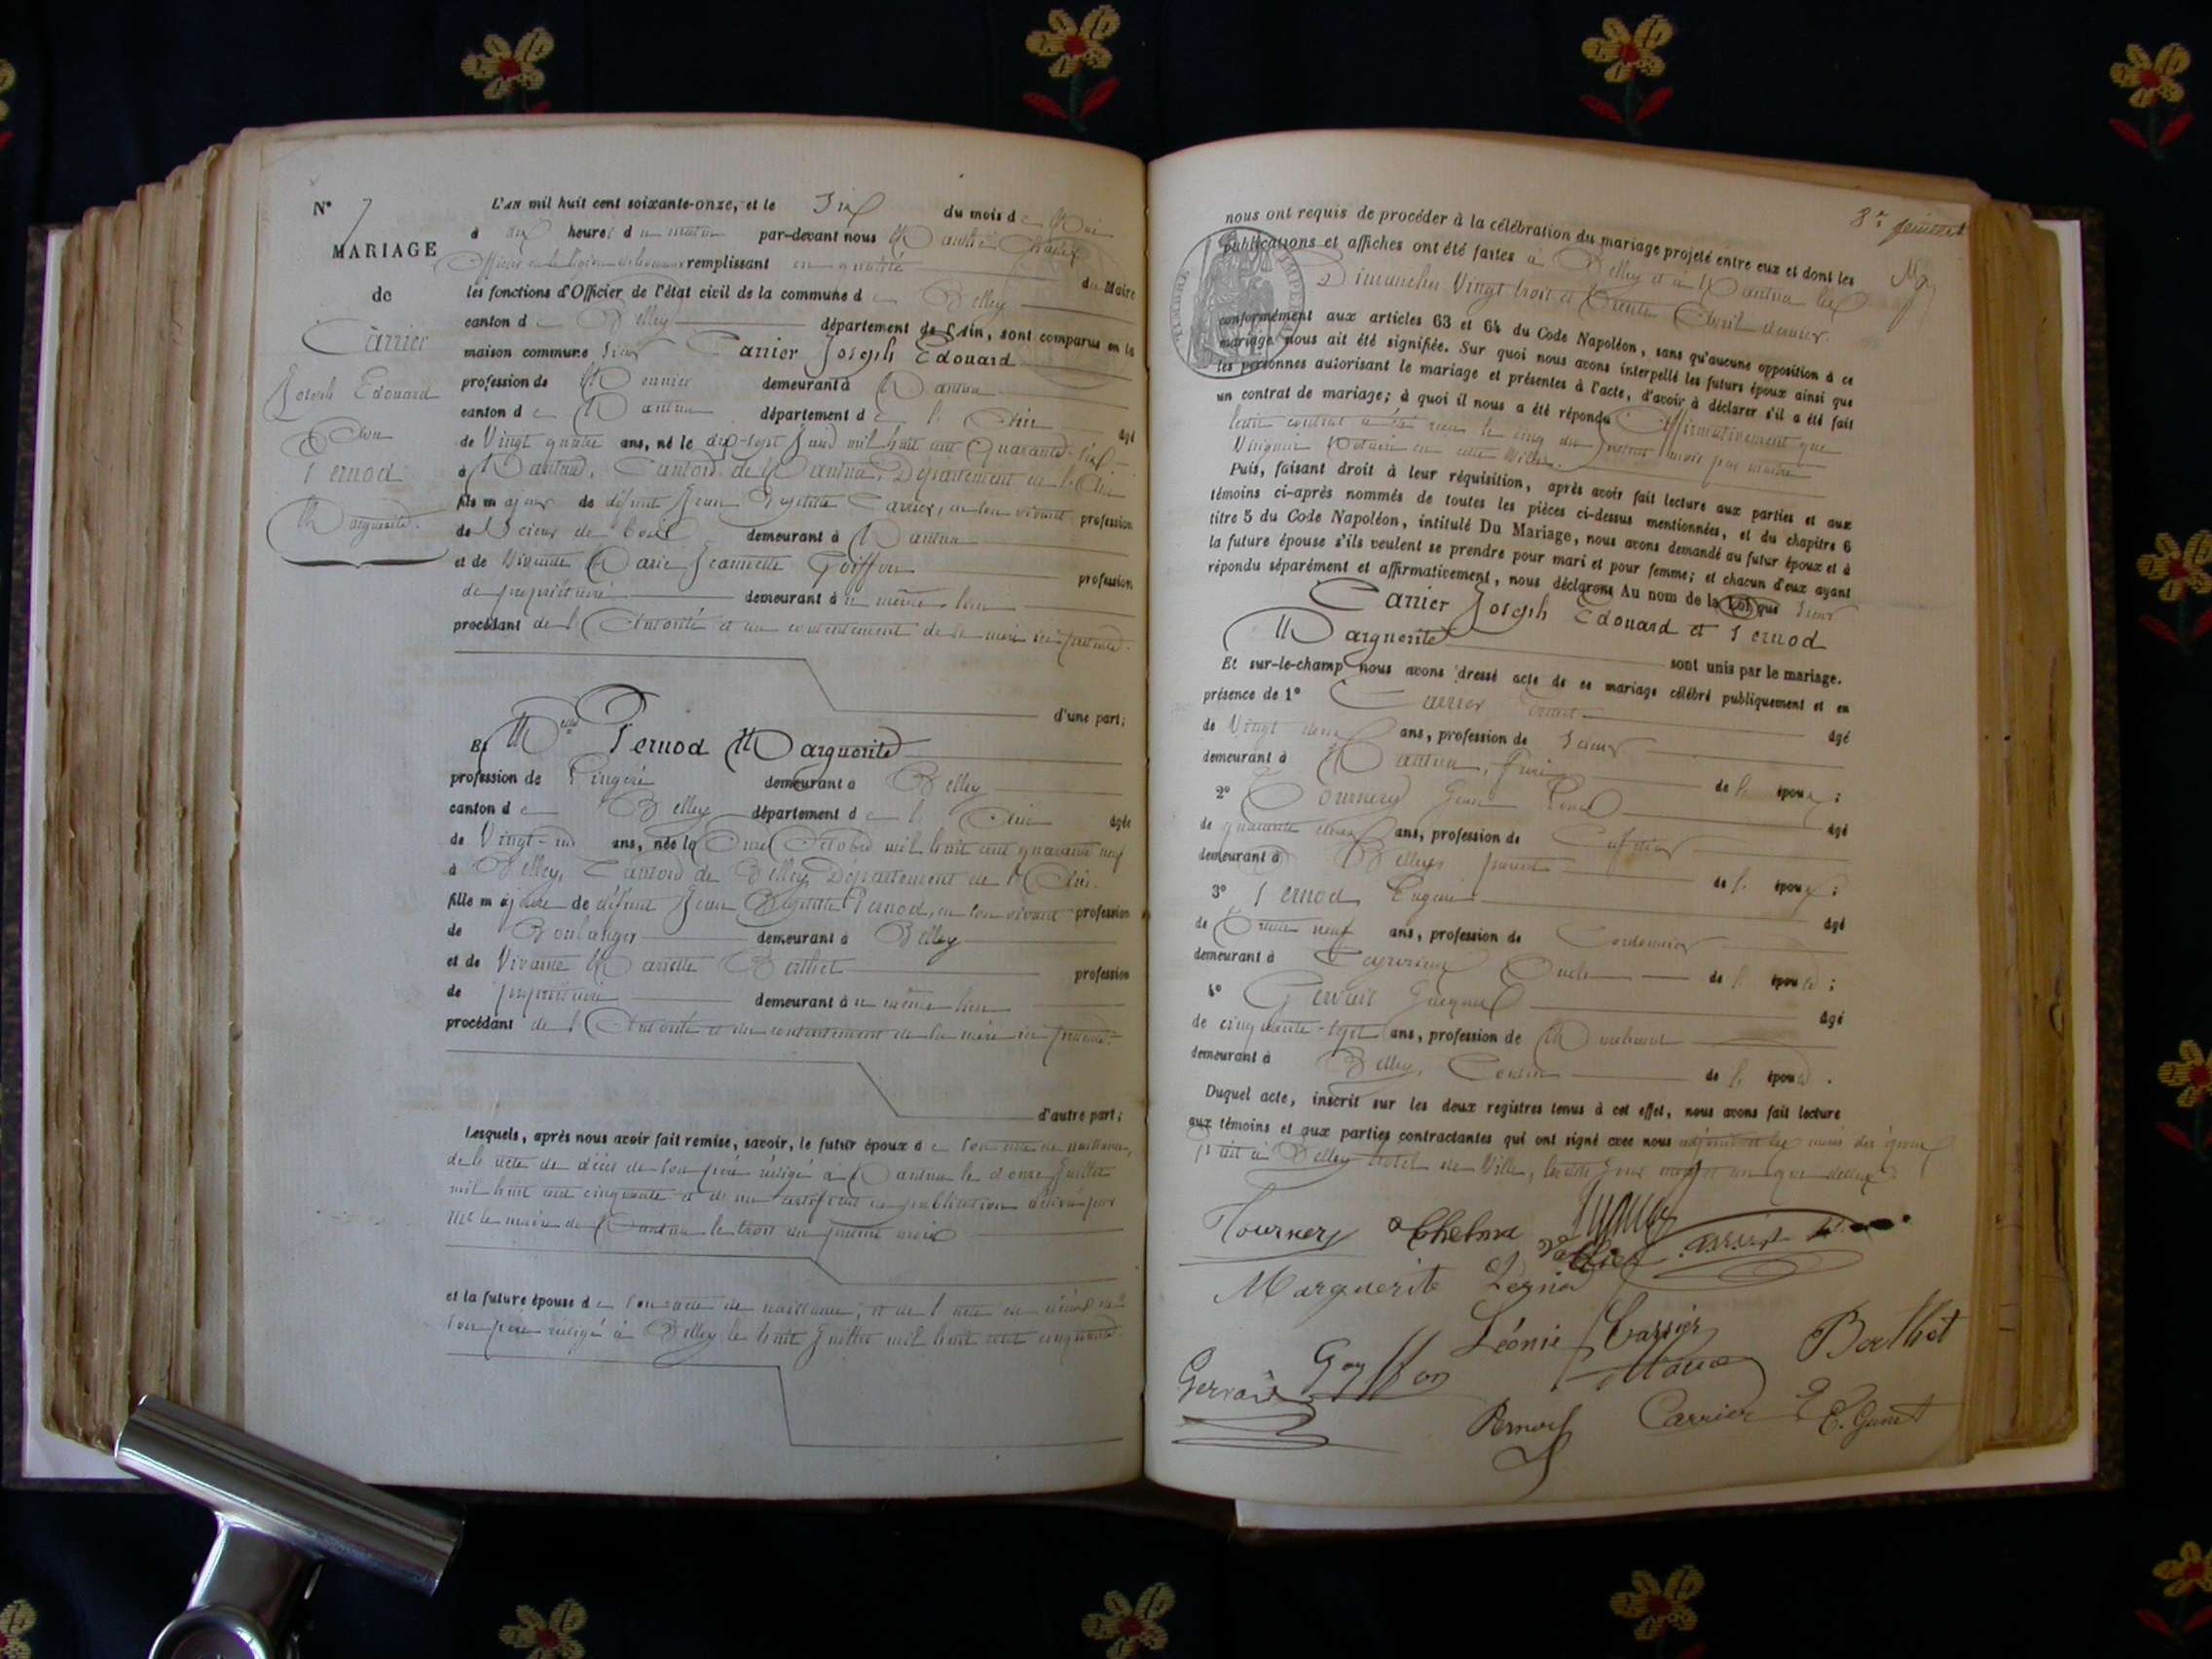 N° 7
MARIAGE
de
Carrier
Joseph Edouard
Pernod
Marguerite.
L'an mil huit cent soixante-onze, et le Six du mois de Mai
à dix heures du matin par-devant nous
Officier de la légion d'honneur remplissant en qualité du Maire
les fonctions d'Officier de l'état civil de la commune de Belley
canton de Belley département de l'Ain, sont comparus en la
maison commune Sieur Carrier Joseph Edouard
profession de demeurant à Nantua
canton de Nantua département de l'Ain âgé
de Vingt quatre ans, né le dix-sept Aout mil huit cent Quarante-Six
à Nantua, Canton de Nantua, Département de l'Ain
fils majeur de défunt Jean Baptiste Carrier, en son vivant profession
de Scieur de bois demeurant à Nantua
et de Vivante Marie Jeannette Goiffon profession
de propriétaire demeurant à même lieu
procédant de l'Autorité et du consentement de sa mère ici présente.
d'une part;
Et Melle Pernod Marguerite
profession de Lingère demeurant à Belley
canton de Belley département de l'Ain âgée
de Vingt-un ans, née le Onze Octobre mil huit cent quarante neuf
à Belley, Canton de Belley Département de l'Ain.
fille majeure de défunt Jean Baptiste Pernod, en son vivant profession
de Boulanger demeurant à Belley
et de Vivante Mariette Berthet profession
de propriétaire demeurant à même lieu
procédant de l'Autorité et du consentement de sa mère ici présente.
d'autre part;
Lesquels, après nous avoir fait remise, savoir, le futur époux de son acte de naissance,
de l'acte de décès de son père rédigé à Nantua le douze Juillet
mil huit cent cinquante et du certificat de publication délivré par
Mr le maire de Nantua le trois du présent mois
et la future épouse de son acte de naissance, et de l'acte de décès de
son père rédigé à Belley le huit Juillet mil huit cent cinquante
8me feuillet
nous ont requis de procéder à la célébration du mariage projeté entre eux et dont les
publications et affiches ont été faites à Belley et à Nantua les
Dimanches Vingt trois et Trente Avril dernier.
conformément aux articles 63 et 64 du Code Napoléon, sans qu'aucune opposition à ce
mariage nous ait été signifiée. Sur quoi nous avons interpellé les futurs époux ainsi que
les personnes autorisant le mariage et présentes à l'acte, d'avoir à déclarer s'il a été fait
un contrat de mariage; à quoi il nous a été répondu Affirmativement que
leur contrat a été reçu le cinq du présent mois par maître
Notaire en cette Ville.
Puis, faisant droit à leur réquisition, après avoir fait lecture aux parties et aux
témoins ci-après nommés de toutes les pièces ci-dessus mentionnées, et du chapitre 6
titre 5 du Code Napoléon, intitulé Du Mariage, nous avons demandé au futur époux et à
la future épouse s'ils veulent se prendre pour mari et pour femme; et chacun d'eux ayant
répondu séparément et affirmativement, nous déclarons Au nom de la Loi que Sieur
Carrier Joseph Edouard et Pernod
Marguerite sont unis par le mariage.
Et sur-le-champ nous avons dressé acte de ce mariage célébré publiquement et en
présence de 1° Carrier âgé
de Vingt deux ans, profession de Scieur
demeurant à Nantua, Frère de l'époux;
2° Tournery Jean Louis âgé
de quarante deux ans, profession de Cafetier
demeurant à Belley, parent de l'époux;
3° Pernod Eugène âgé
de Trente neuf ans, profession de Cordonnier
demeurant à Oncle de l'épouse;
4° Gervais Jacques âgé
de cinquante-sept ans, profession de
demeurant à Belley, Cousin de l'épouse.
Duquel acte, inscrit sur les deux registres tenus à cet effet, nous avons fait lecture
aux témoins et aux parties contractantes qui ont signé avec nous
Fait à Belley hôtel de Ville, les dits jour mois et an que dessus
Tournery Thelma
Marguerite Pernod
Léonie Carrier Berthet
Gervais Goyffon
Pernod Carrier E. Gunet